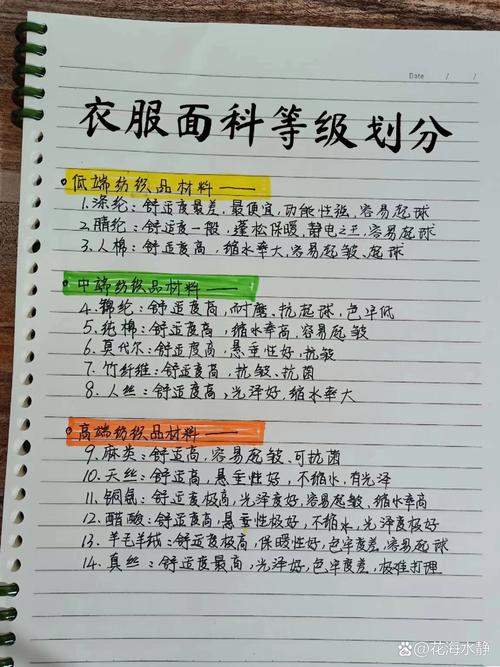 Date / /
衣服面科等级划分
低端纺织品材料——
1.涤纶:舒适度最差,最便宜,功能性强,容易起球
2.腈纶:舒适度一般,蓬松保暖,静电之王,容易起球
3.人棉:舒适度高,缩水率大,容易起皱、起球
中端纺织品材料——
4.锦纶:舒适度高,耐磨、抗起球,色牢低
5.纯棉:舒适度高,缩水率高,容易起皱
6.莫代尔:舒适度高,悬垂性好,抗皱
7.竹纤维:舒适度高,抗皱、抗菌
8.人丝:舒适度高,光泽好,缩水率大
高端纺织品材料——
9.麻类:舒适高,容易起皱、可抗菌
10.天丝:舒适高,悬垂性好,不缩水,有光泽
11.铜氨:舒适度极高,光泽度好,容易起皱,缩水率高
12.醋酸:舒适度高,悬垂性极好,不缩水,光泽度极好
13.羊毛羊绒:舒适度极高,保暖性好,色牢度差,容易起球
14.真丝:舒适度最高,光泽好,色牢度差,极难打理
@花海水静